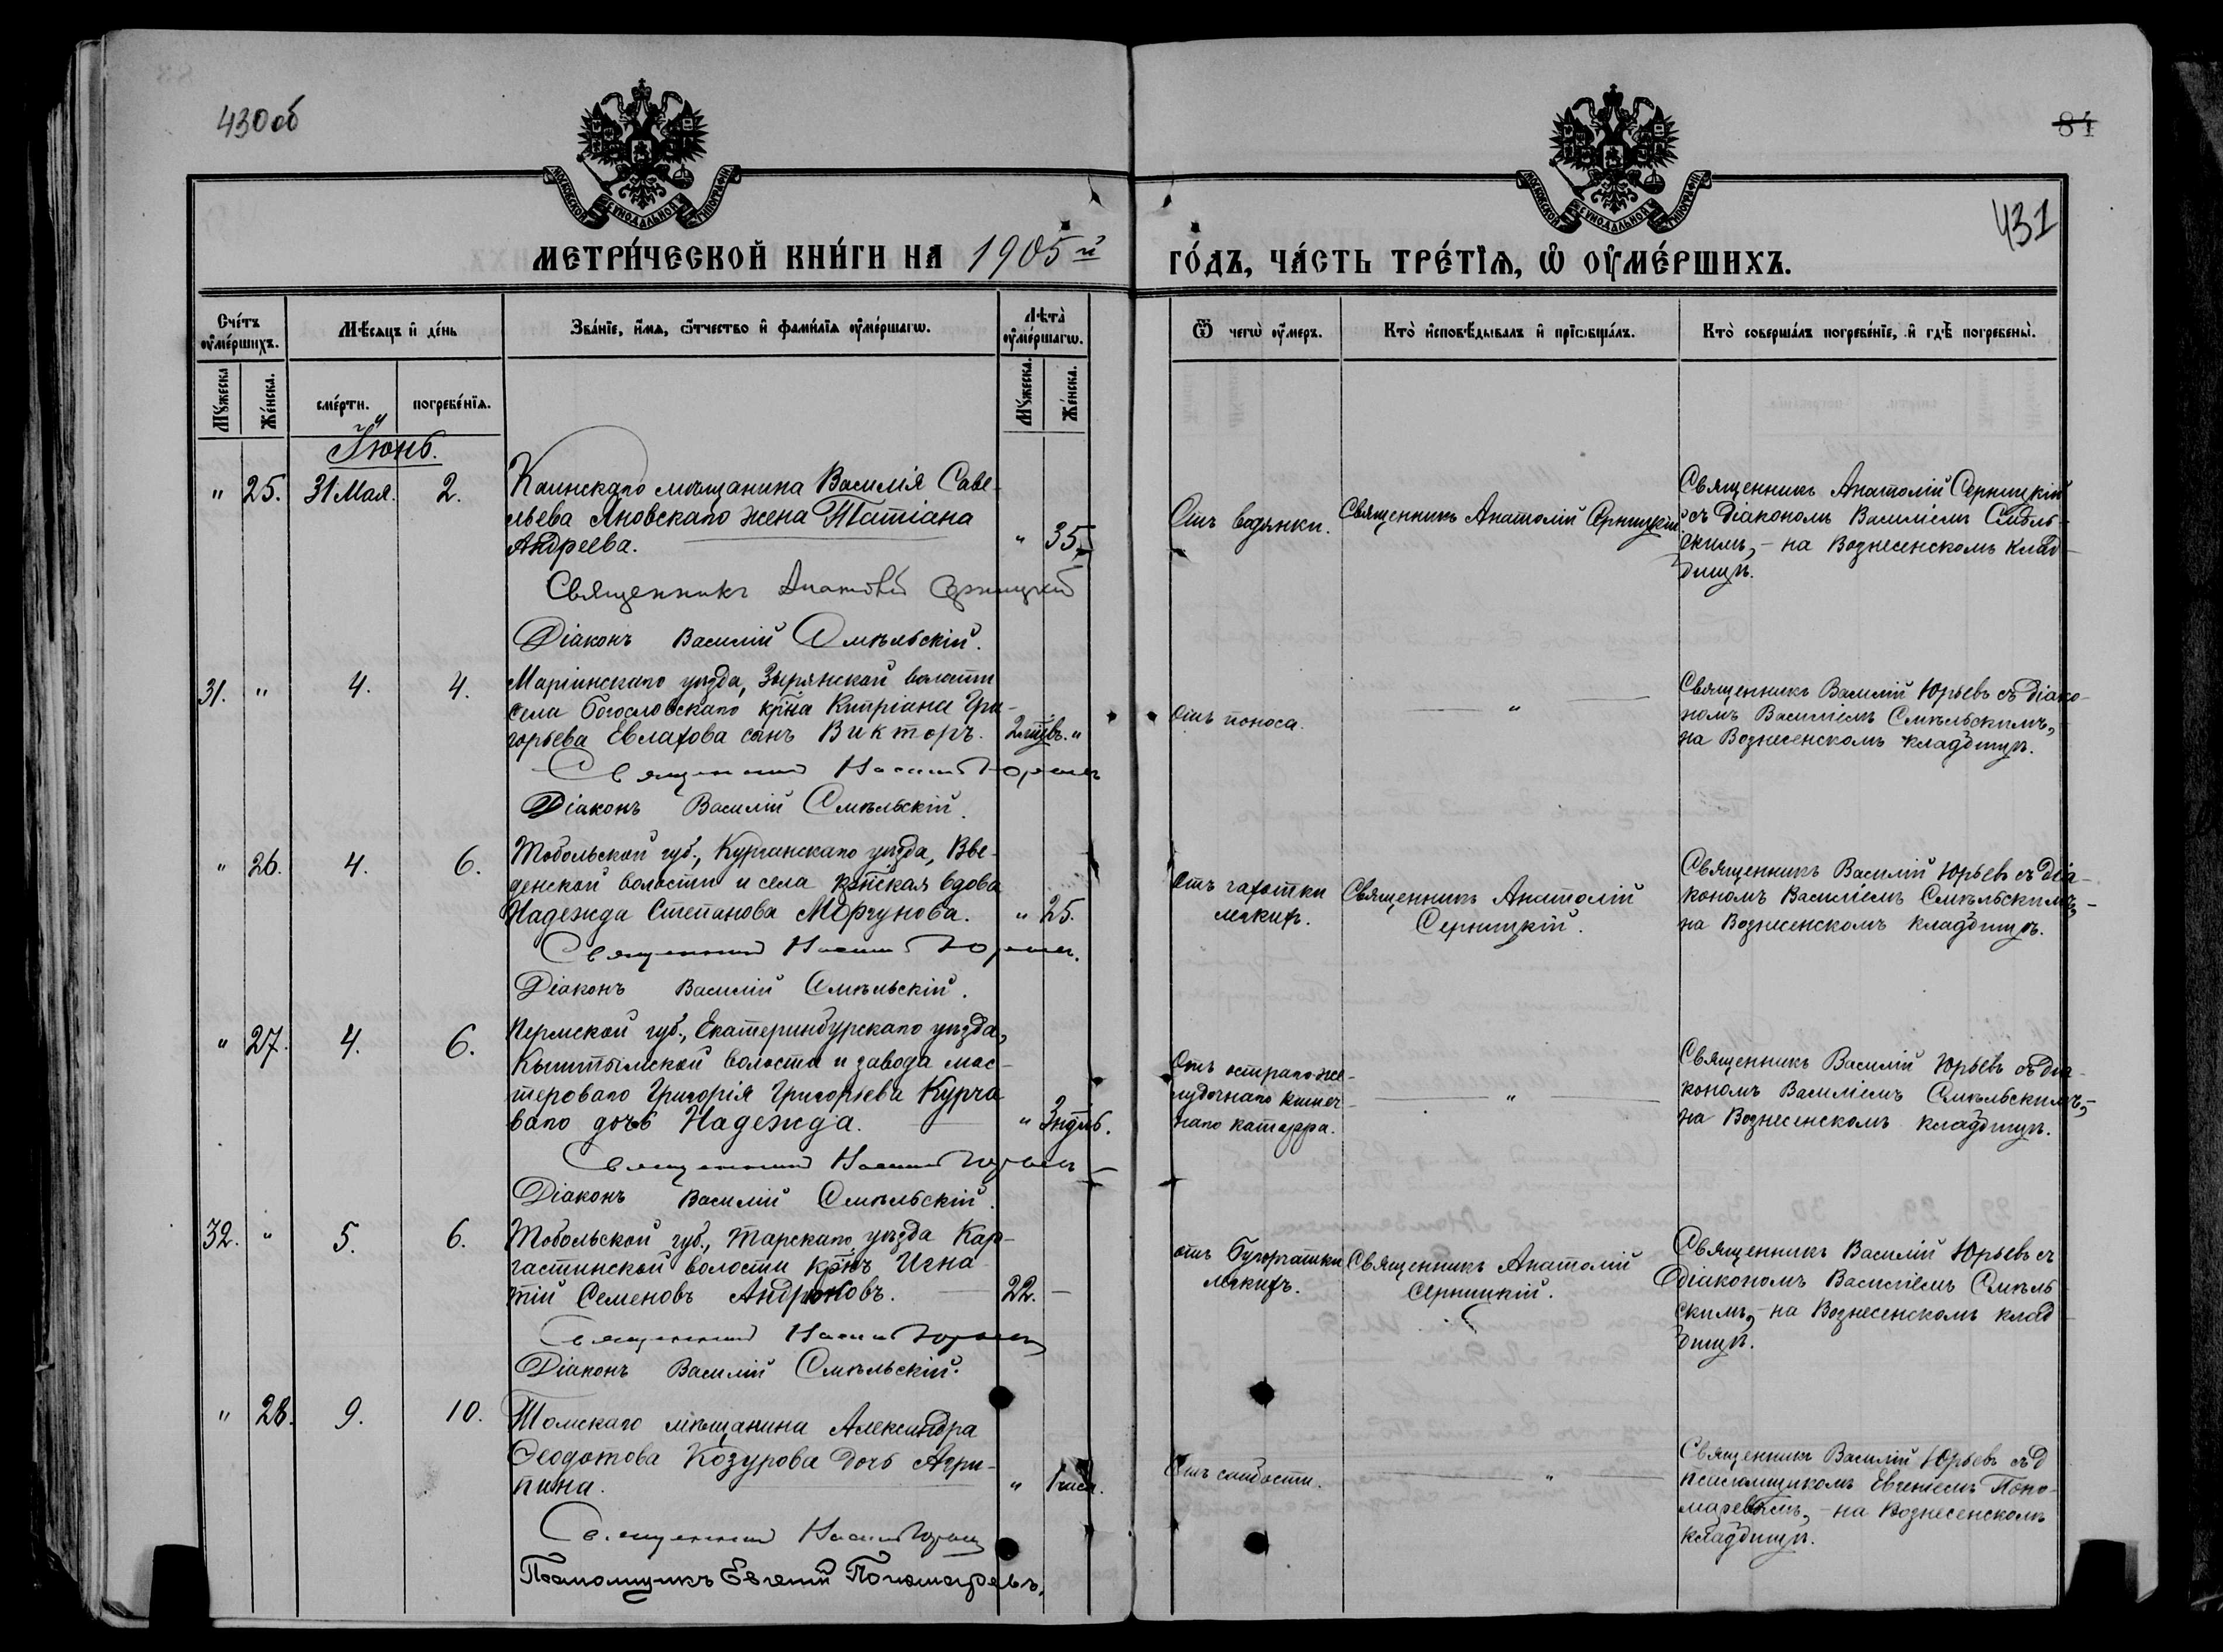 430 об
84
431
МОСКОВСКОЙ СУНОДАЛЬНОЙ ТИПОГРАФІИ
МОСКОВСКОЙ СУНОДАЛЬНОЙ ТИПОГРАФІИ
МЕТРИ́ЧЕСКОЙ КНИ́ГИ НА 1905 й
ГО́ДЪ, ЧА́СТЬ ТРЕ́ТІѦ, Ѡ ОУМЕ́РШИХЪ.
Сче́тъ оумéршихъ.
Мѣ́сяцъ и де́нь
Зва́ніе, и́мя, о́тчество и фами́лія оумéршагѡ.
Лѣта̀ оумéршагѡ.
Ѿ чегѡ̀ оу́меръ.
Кто̀ и҆сповѣ́дывалъ и҆ пріѡбща́лъ.
Кто̀ соверша́лъ погребе́ніе, и҆ гдѣ̀ погребены̀.
Му́жеска
Же́нска.
сме́рти.
погребе́нія.
Му́жеска.
Же́нска.
Іюнь.
" 25. 31 Мая. 2. Каинскаго мѣщанина Василія Саве-
льева Яновскаго жена Татіана
Андреева. " 35.
Священникъ Анатолій Серницкій
Діаконъ Василій Смѣльскій.
Отъ водянки.
Священникъ Анатолій Серницкій.
Священникъ Анатолій Серницкій
съ діакономъ Василіемъ Смѣль-
скимъ, - на Вознесенскомъ клад-
бищѣ.
31. " 4. 4. Маріинскаго уѣзда, Зырянской волости
села Богословскаго кр-на Кипріана Гри-
горьева Евлахова сынъ Викторъ. 2 мѣс. "
Священникъ Василій Юрьевъ
Діаконъ Василій Смѣльскій.
Отъ поноса.
"
Священникъ Василій Юрьевъ съ діако-
номъ Василіемъ Смѣльскимъ,
на Вознесенскомъ кладбищѣ.
" 26. 4. 6. Тобольской губ., Курганскаго уѣзда, Вве-
денской волости и села кр-нская вдова
Надежда Степанова Моргунова. " 25.
Священникъ Василій Юрьевъ.
Діаконъ Василій Смѣльскій.
Отъ чахотки
легкихъ.
Священникъ Анатолій
Серницкій.
Священникъ Василій Юрьевъ съ діа-
кономъ Василіемъ Смѣльскимъ, -
на Вознесенскомъ кладбищѣ.
" 27. 4. 6. Пермской губ., Екатеринбурскаго уѣзда,
Кыштымской волости и завода мас-
тероваго Григорія Григорьева Курча-
ваго дочь Надежда. " 3 недѣль.
Священникъ Василій Юрьевъ
Діаконъ Василій Смѣльскій.
Отъ остраго же-
лудочнаго кишеч-
наго катарра.
"
Священникъ Василій Юрьевъ съ діа-
кономъ Василіемъ Смѣльскимъ, -
на Вознесенскомъ кладбищѣ.
32. " 5. 6. Тобольской губ., Тарскаго уѣзда Кар-
гастинской волости кр-нъ Игна-
тій Семеновъ Андрюковъ. 22. -
Священникъ Василій Юрьевъ
Діаконъ Василій Смѣльскій.
отъ бугорчатки
легкихъ.
Священникъ Анатолій
Серницкій.
Священникъ Василій Юрьевъ съ
діакономъ Василіемъ Смѣль-
скимъ, - на Вознесенскомъ клад-
бищѣ.
" 28. 9. 10. Томскаго мѣщанина Александра
Ѳеодотова Козурова дочь Агри-
пина. "
Священникъ Василій Юрьевъ
Псаломщикъ Евгеній Пономаревъ.
Отъ слабости.
"
Священникъ Василій Юрьевъ съ
псаломщикомъ Евгеніемъ Поно-
маревымъ, - на Вознесенскомъ
кладбищѣ.